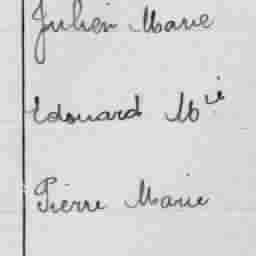 Julien Marie
Edouard Mie
Pierre Marie